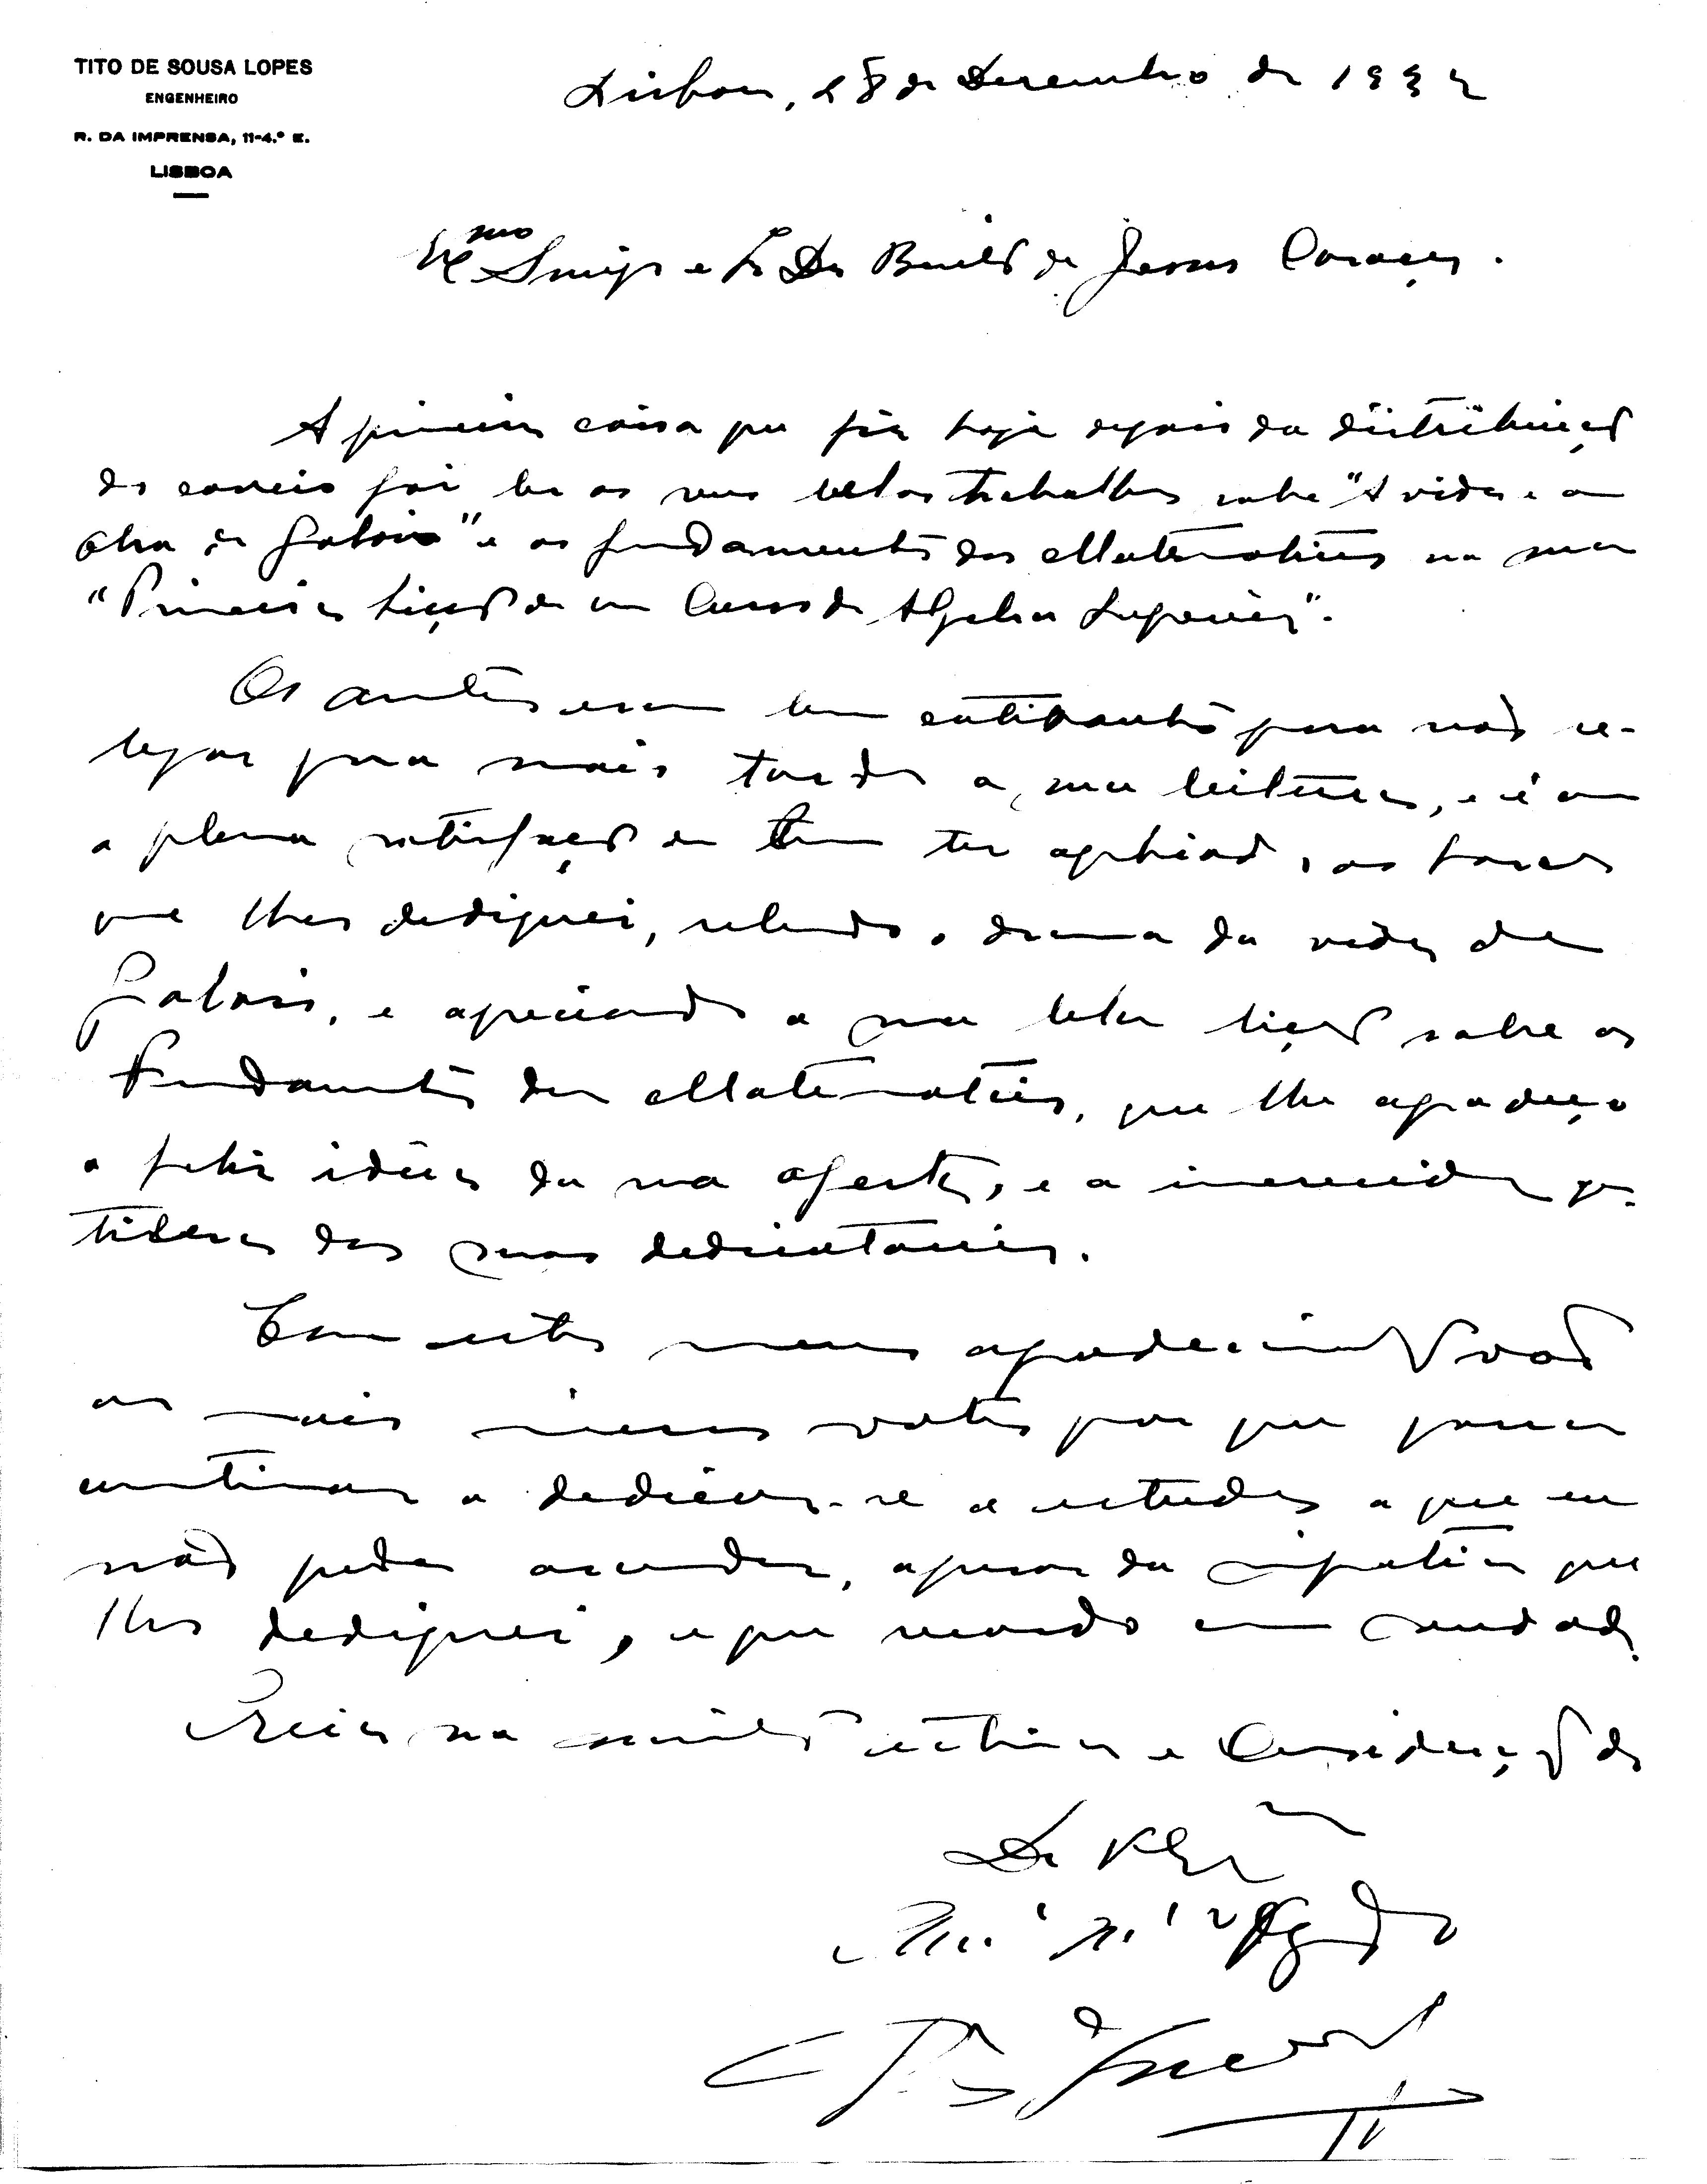 TITO DE SOUSA LOPES
ENGENHEIRO
R. DA IMPRENSA, 11-4.º E.
LISBOA
Lisboa, 28 de Dezembro de 1932
Exmo Amigo e Sr Dr Bento de Jesus Caraça.
A primeira coisa que fiz hoje depois da distribuição
do correio foi ler os seus belos trabalhos sobre "A vida e a
obra de Galois" e os fundamentos da Matematica na sua
"Primeira Lição de um Curso de Algebra Superior".
Os assuntos eram bem cativantes para não re-
legar para mais tarde a sua leitura, e é com
a plena satisfação de bem ter aplicado, as horas
que lhes dediquei, relendo o drama da vida de
Galois, e apreciando a sua bela lição sobre os
Fundamentos da Matematica, que lhe agradeço
a feliz ideia da sua oferta, e a imerecida gen-
tileza das suas dedicatorias.
Com estes meus agradecimentos vão
os mais sinceros votos por que possa
continuar a dedicar-se a estudos a que eu
não pude ascender, apesar da simpatia que
lhes dediquei, e que recordo com saudade.
Creia na muita estima e Consideração do
De V. Ex.